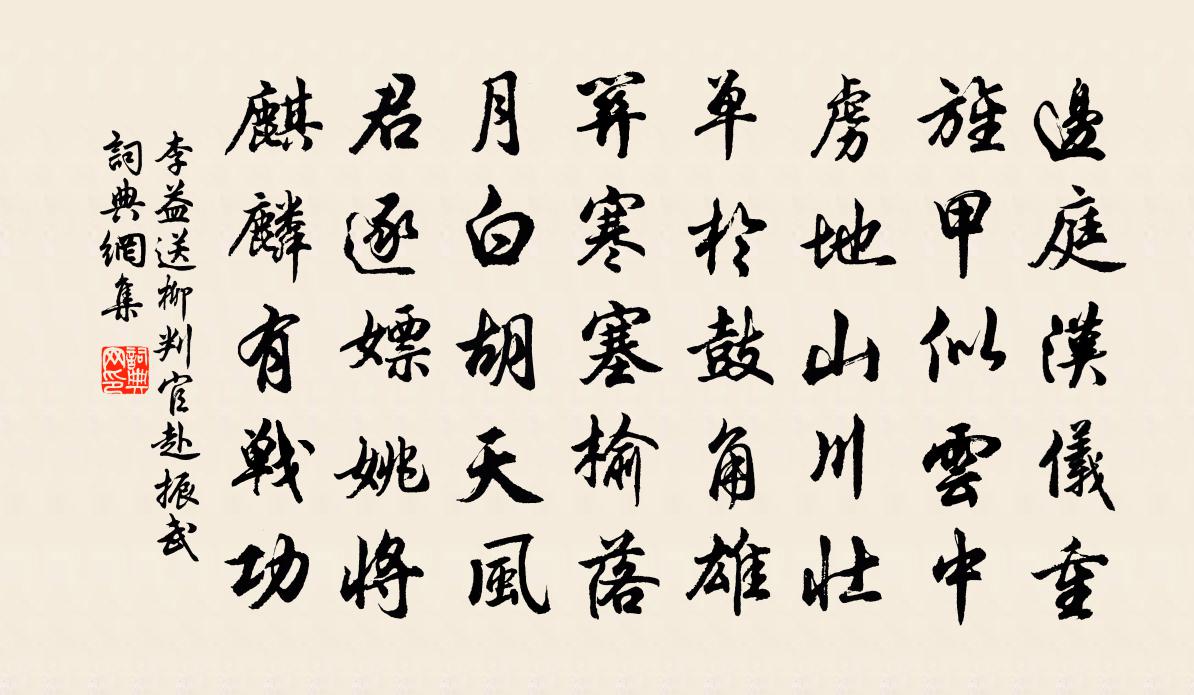 邊庭漢儀重
旌甲似雲中
虜地山川壯
单於鼓角雄
關寒塞榆落
月白胡天風
君逐嫖姚將
麒麟有戰功
李益送柳判官赴振武
詞典網集
詞典网印